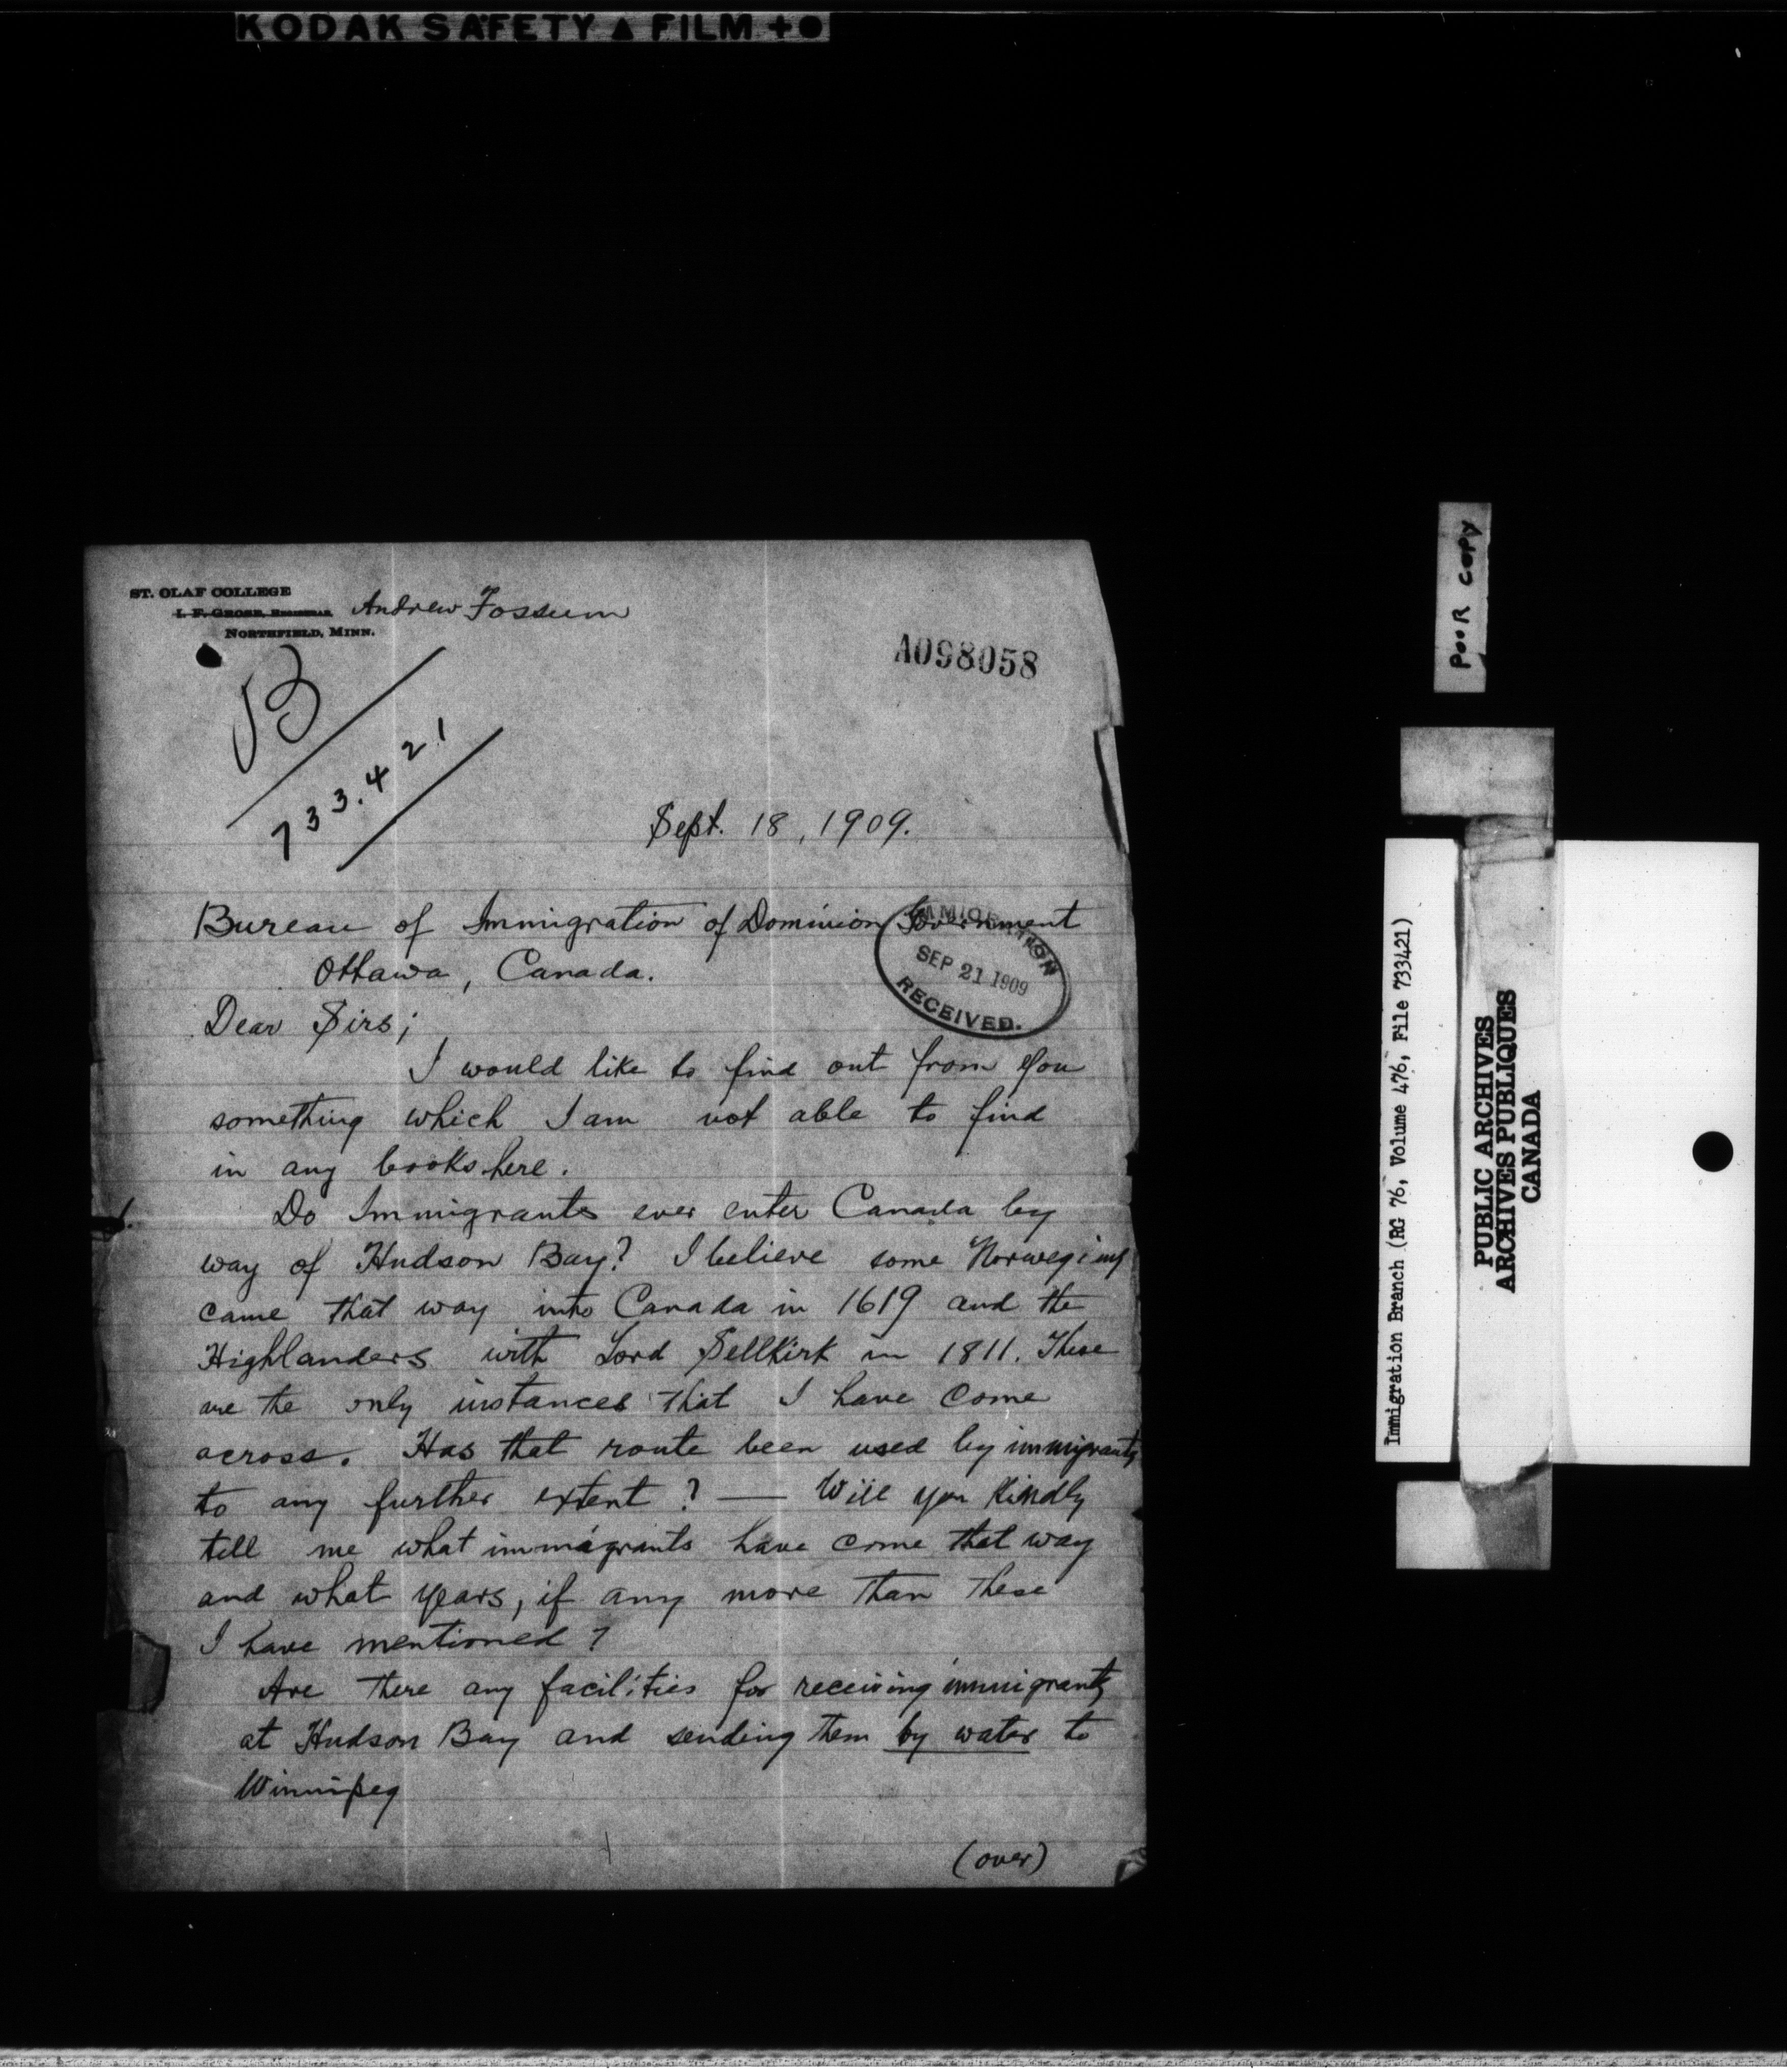 KODAK SAFETY ▲ FILM + ●
ST. OLAF COLLEGE
I. F. GROSE, REGISTRAR Andrew Fossum
NORTHFIELD, MINN.
A098058
B
733.421
Sept. 18, 1909.
Bureau of Immigration of Dominion Government
Ottawa, Canada.
IMMIGRATION
SEP 21 1909
RECEIVED.
Dear Sirs;
I would like to find out from you
something which I am not able to find
in any books here.
Do Immigrants ever enter Canada by
way of Hudson Bay? I believe some Norwegians
came that way into Canada in 1619 and the
Highlanders with Lord Sellkirk in 1811. These
are the only instances that I have come
across. Has that route been used by immigrants
to any further extent? — Will you kindly
tell me what immigrants have come that way
and what years, if any more than these
I have mentioned?
Are there any facilities for receiving immigrants
at Hudson Bay and sending them by water to
Winnipeg
(over)
POOR COPY
Immigration Branch (RG 76, Volume 476, File 733421)
PUBLIC ARCHIVES
ARCHIVES PUBLIQUES
CANADA